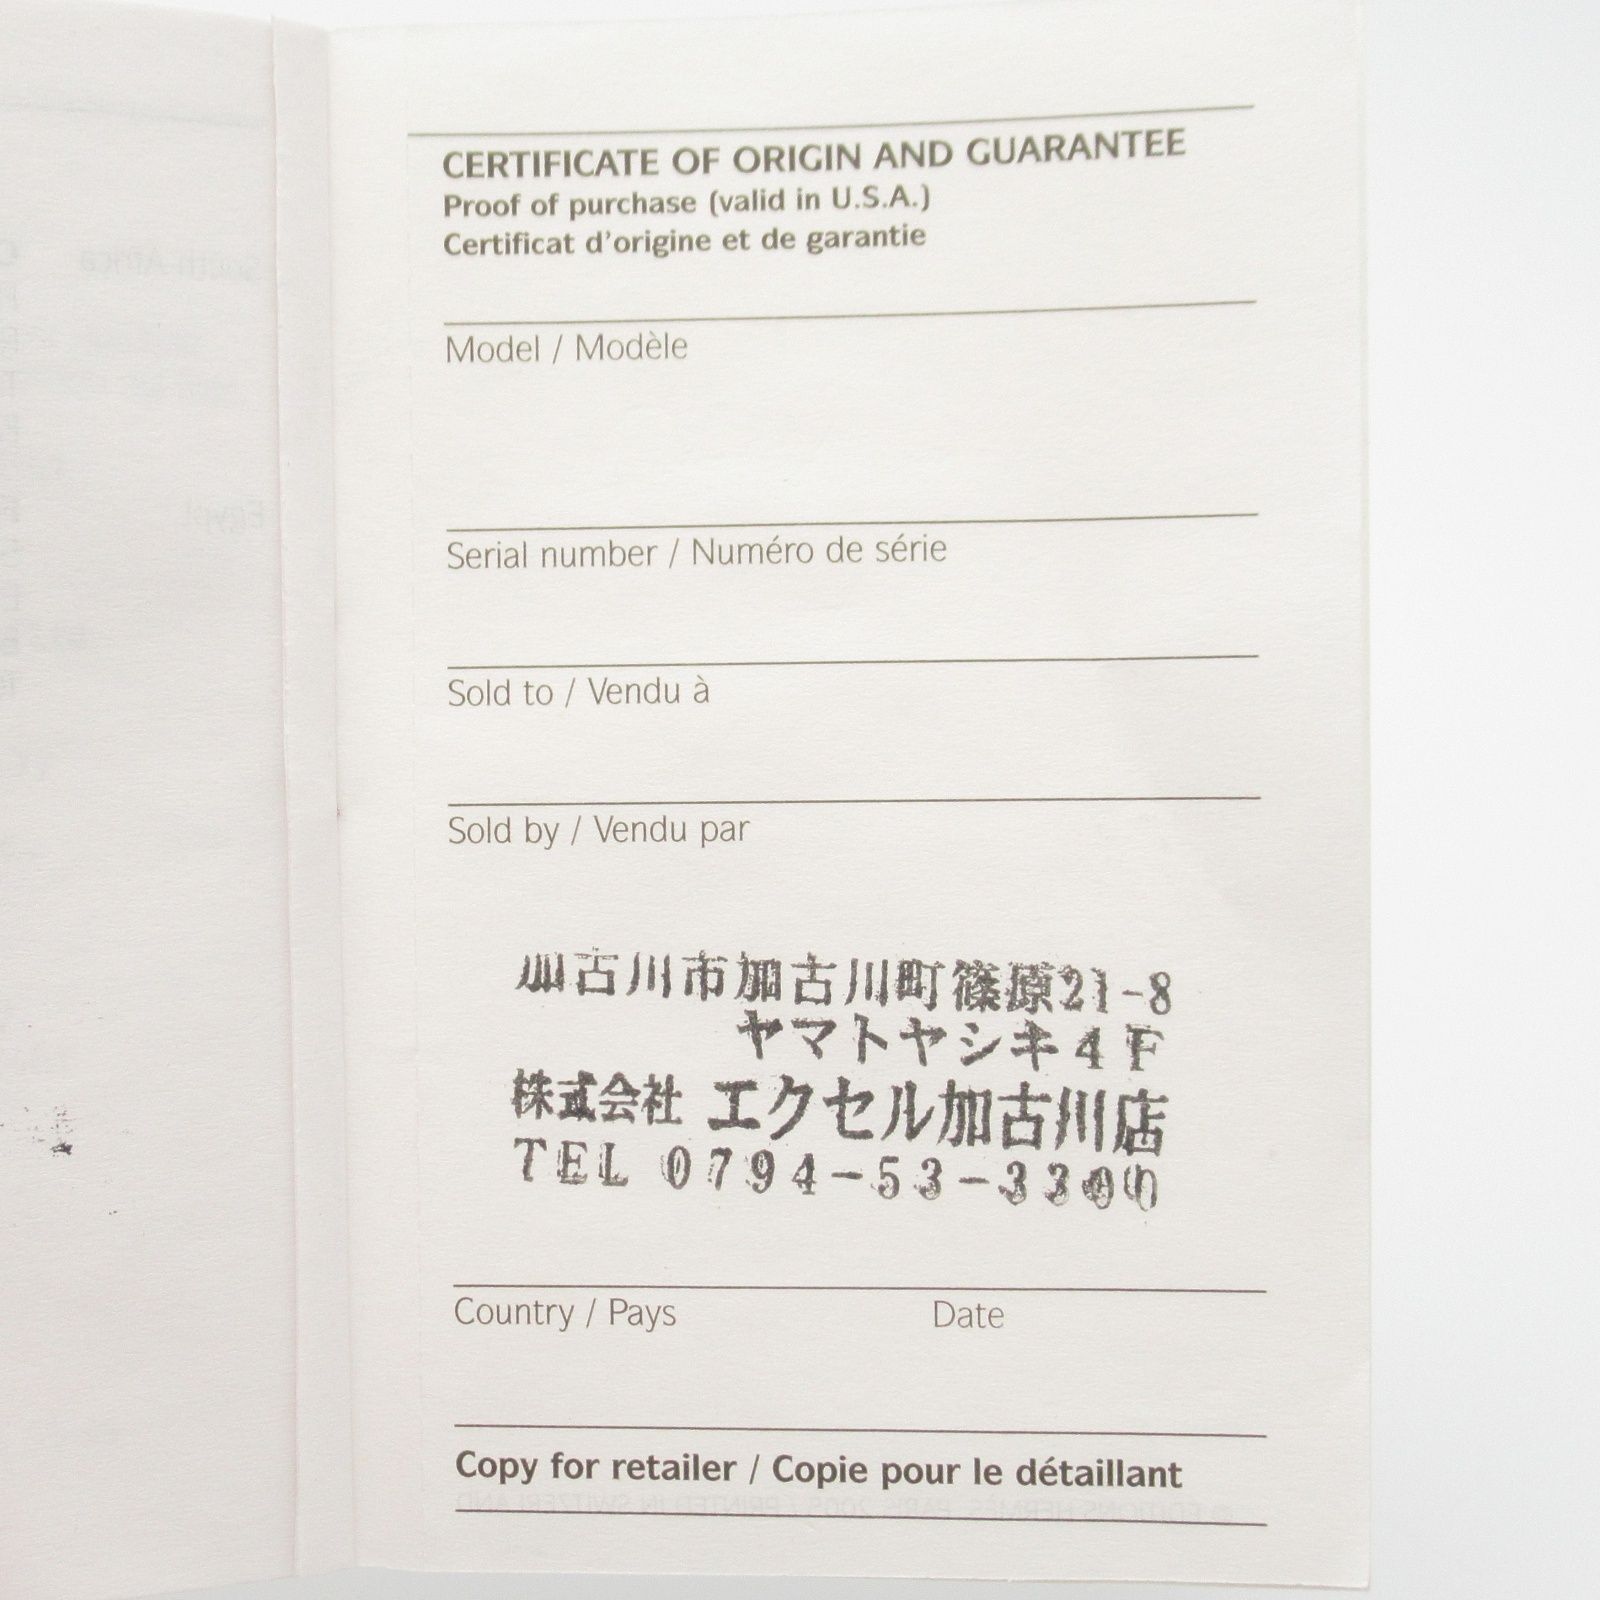 CERTIFICATE OF ORIGIN AND GUARANTEE
Proof of purchase (valid in U.S.A.)
Certificat d'origine et de garantie
Model / Modèle
Serial number / Numéro de série
Sold to / Vendu à
Sold by / Vendu par
加古川市加古川町篠原21-8
ヤマトヤシキ4F
株式会社 エクセル加古川店
TEL 0794-53-3300
Country / Pays Date
Copy for retailer / Copie pour le détaillant
South Africa
Egypt